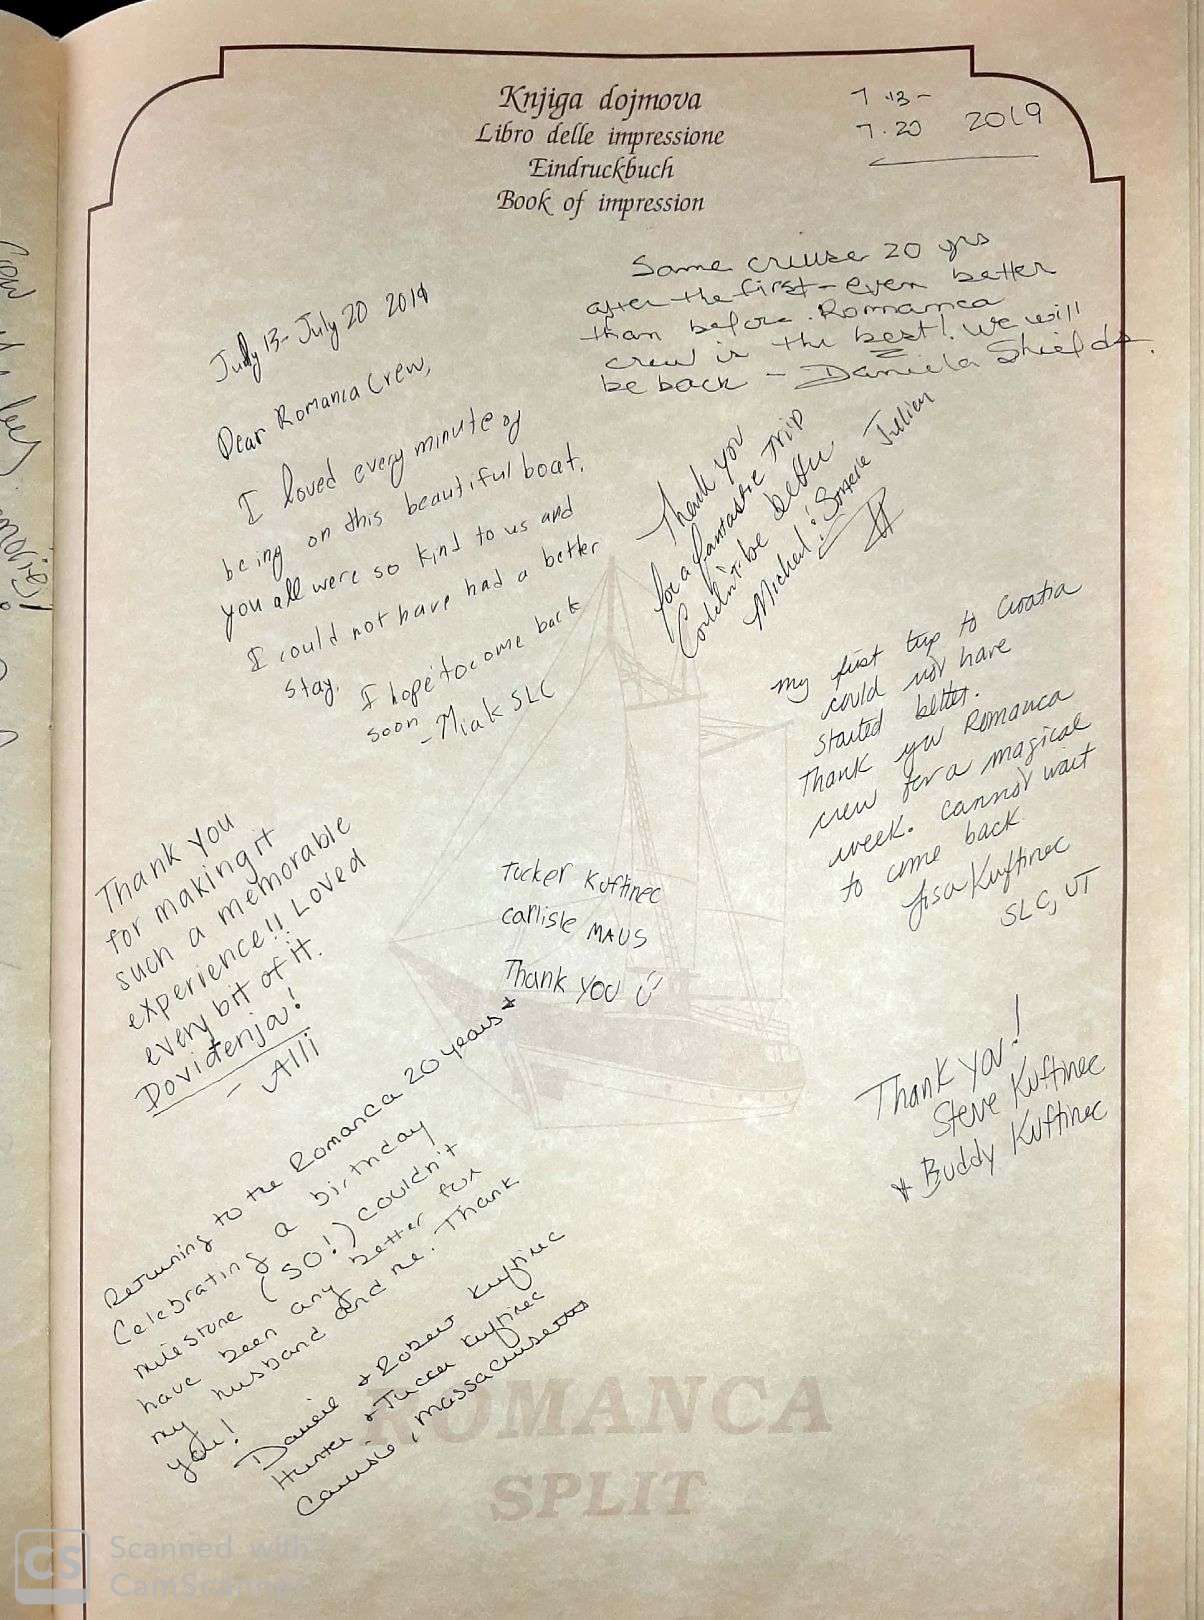 Knjiga dojmova
Libro delle impressione
Eindruckbuch
Book of impression
7.13-
7.20 2019
Same cruise 20 yrs
after the first - even better
than before. Romanca
crew is the best! We will
be back - Daniela Shields.
July 13 - July 20 2019
Dear Romanca Crew,
I loved every minute of
being on this beautiful boat.
you all were so kind to us and
I could not have had a better
stay.
I hope to come back
soon
SLC
Thank you
for a fantastic trip
Couldn't be better
Michael
Jullien
my first trip to Croatia
could not have
started better.
Thank you Romanca
crew for a magical
week. Cannot wait
to come back
Lisa Kuftinec
SLC, UT
Thank you
for making it
such a memorable
experience!! Loved
every bit of it.
Dovidenja!
- Alli
Tucker Kuftinec
carlisle MAUS
Thank you
Thank you!
Steve Kuftinec
+ Buddy Kuftinec
Returning to the Romanca 20 years +
Celebrating a birthday
milestone (50!) couldn't
have been any better for
my husband and me. Thank
you!
Daniele + Robert Kuftinec
Hunter + Tucker Kuftinec
Carlisle, Massachusetts
ROMANCA
SPLIT
CS Scanned with
CamScanner